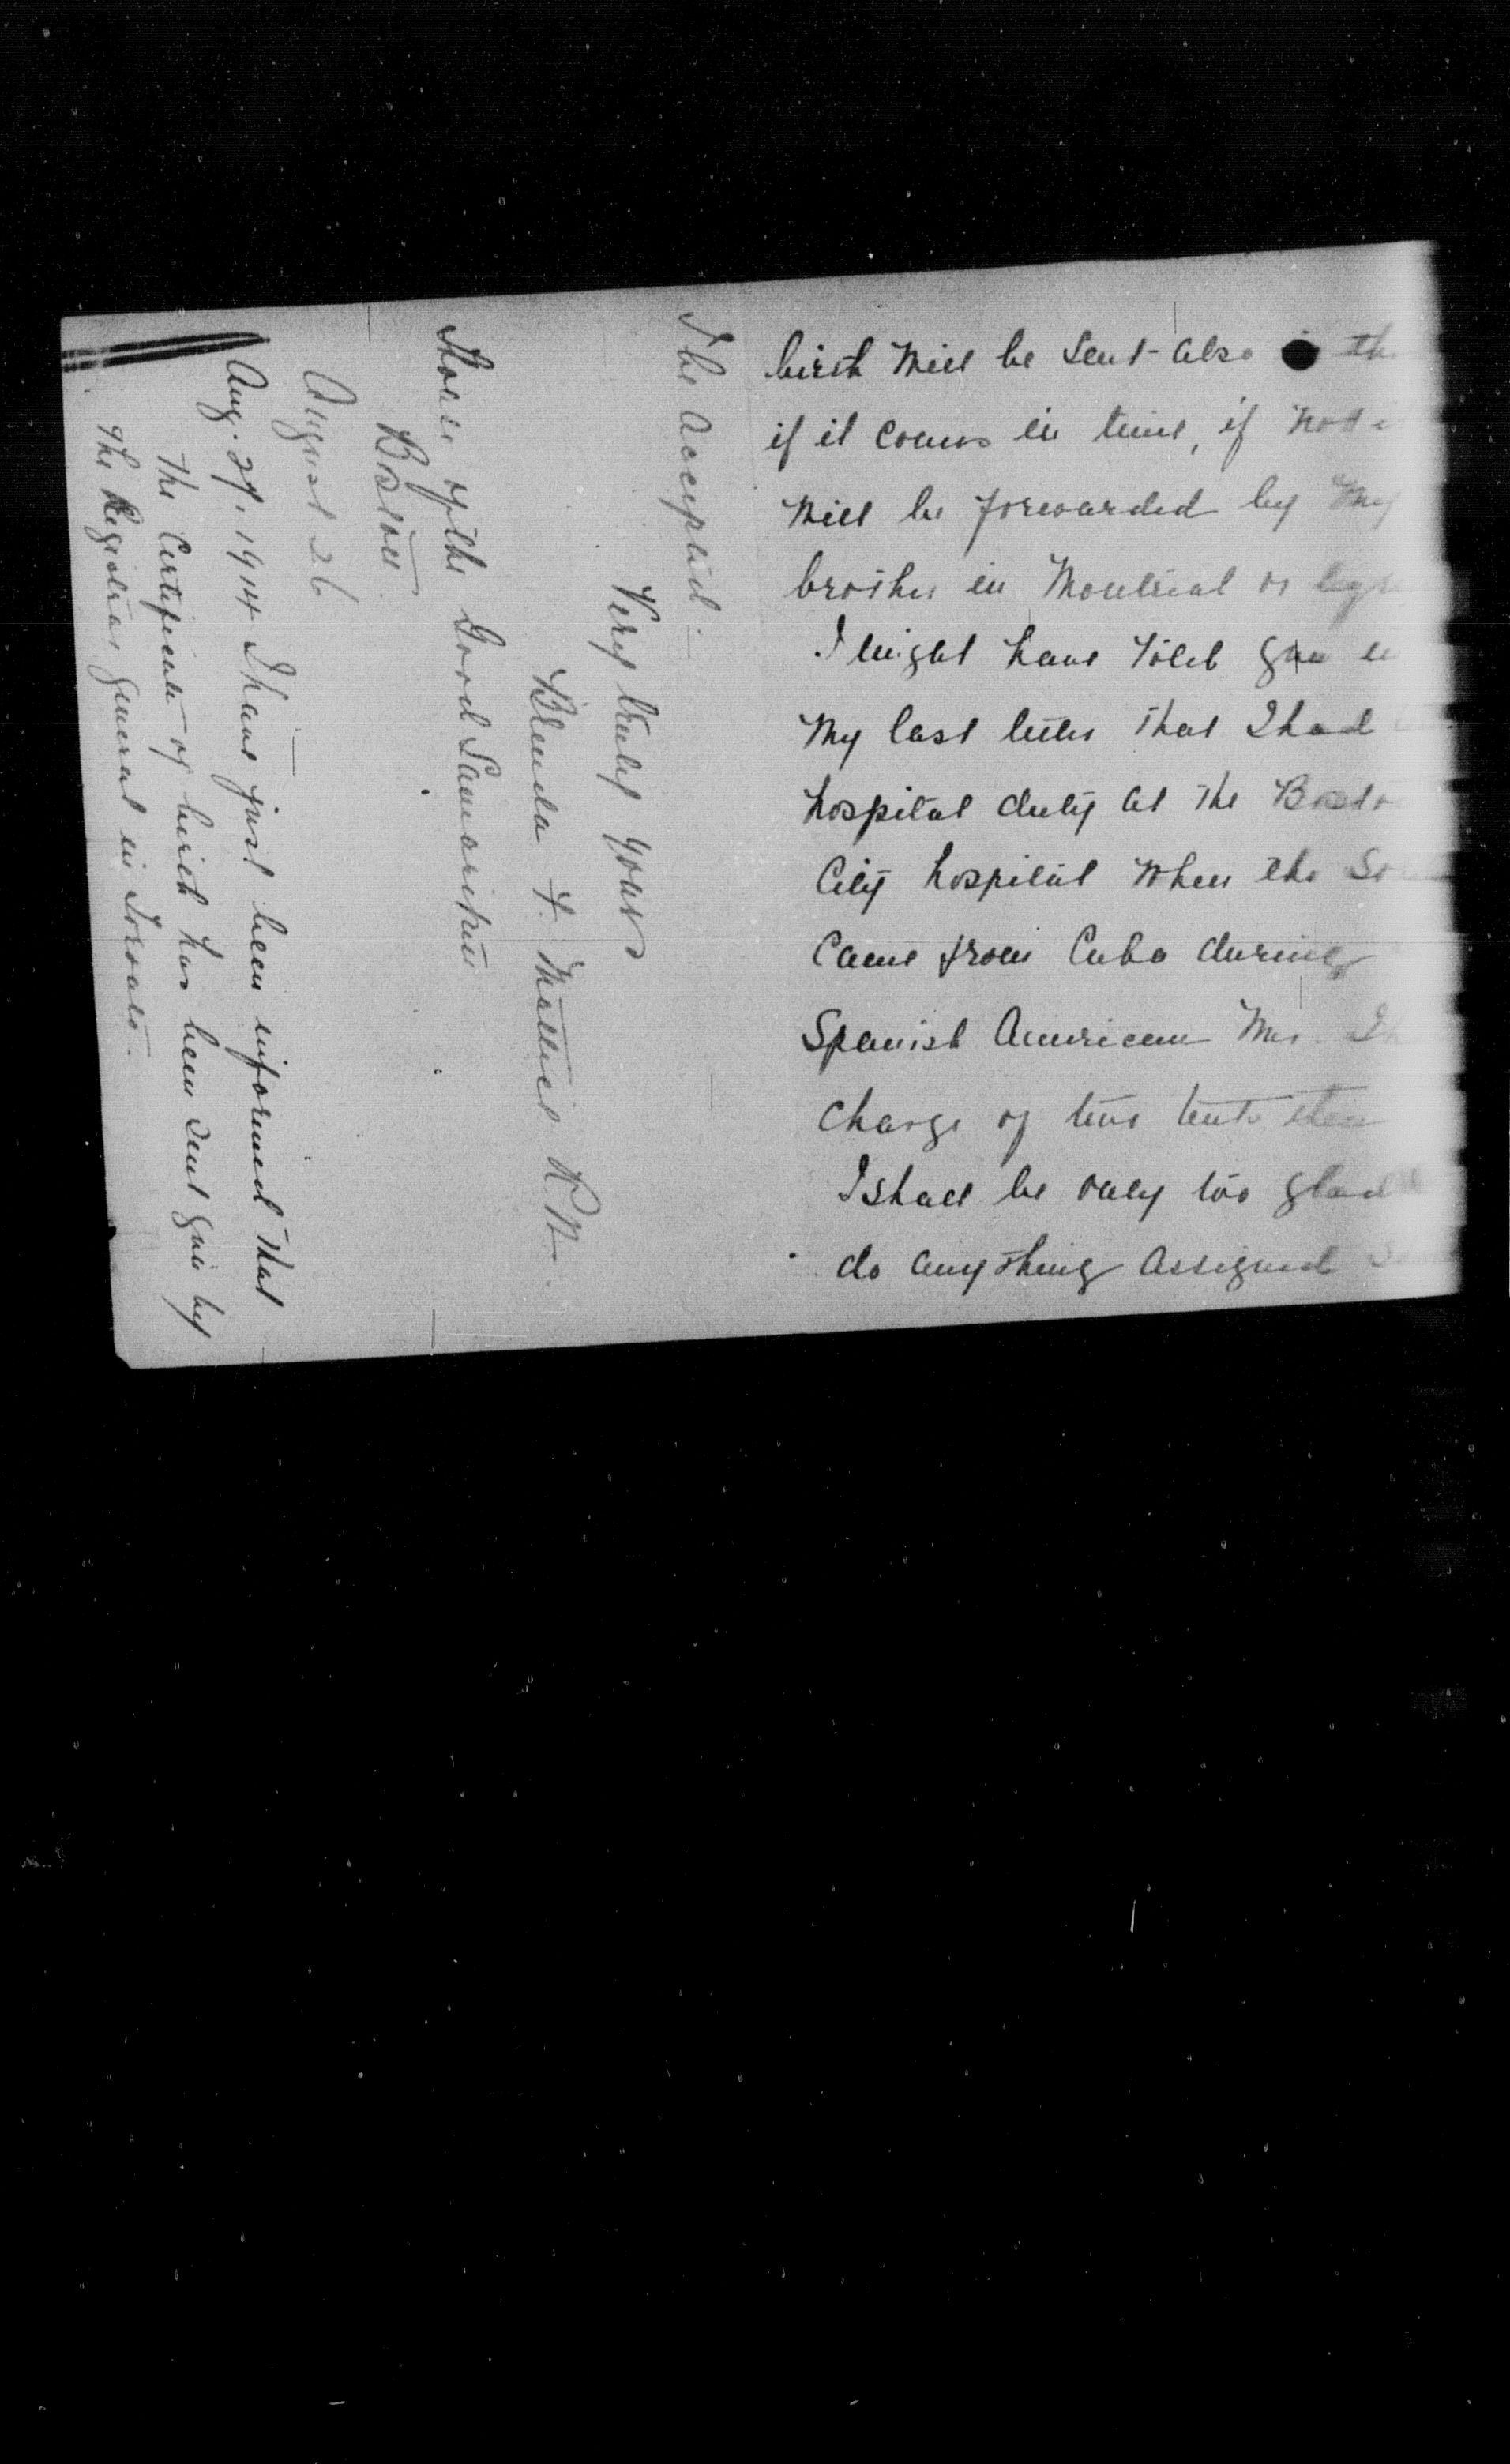 birth will be sent also th
if it comes in time, if not
will be forwarded by my
brother in Montreal or
I might have told you in
my last letter that I had
hospital duty at the Bosto
City hospital when the So
came from Cuba during
Spanish American War. I
charge of two tents then
I shall be only too glad
do anything assigned
I be accepted.
Very truly yours
Blenda F. Mattice R.N.
House of the Good Samaritan
Boston
August 26
Aug. 27, 1914 I have just been informed that
the Certificate of birth has been sent you by
the Registrar general in Toronto.